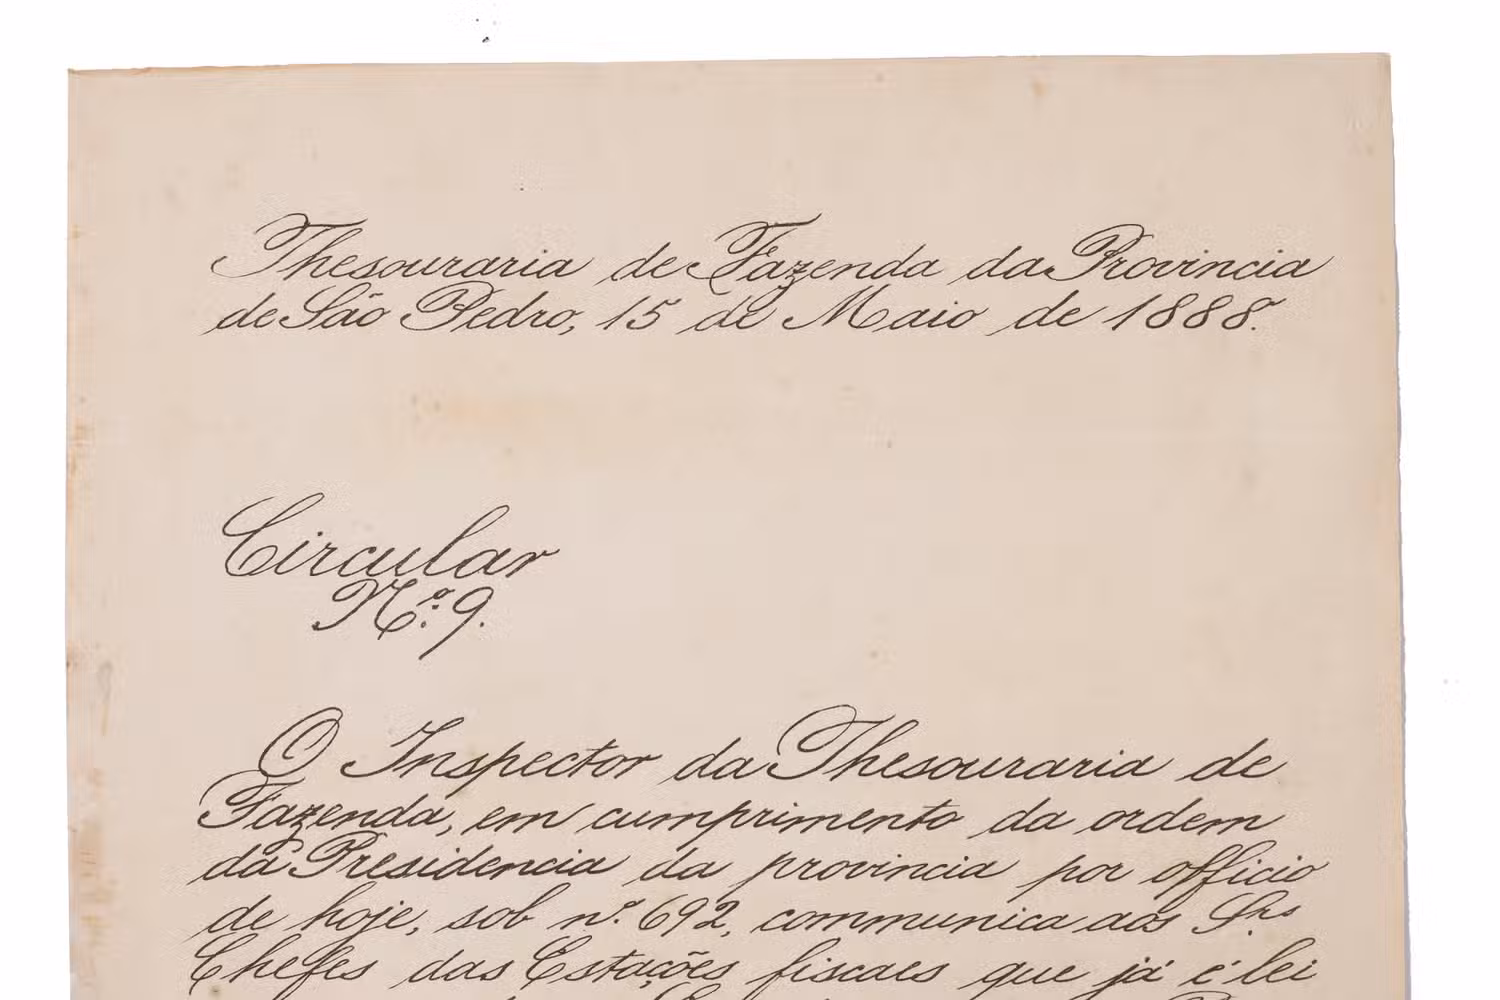 Thesouraria de Fazenda da Provincia
de São Pedro, 15 de Maio de 1888.
Circular
N.º 9.
O Inspector da Thesouraria de
Fazenda, em cumprimento da ordem
da Presidencia da provincia por officio
de hoje, sob n.º 692, communica aos Srs
Chefes das Estações fiscaes que já é lei